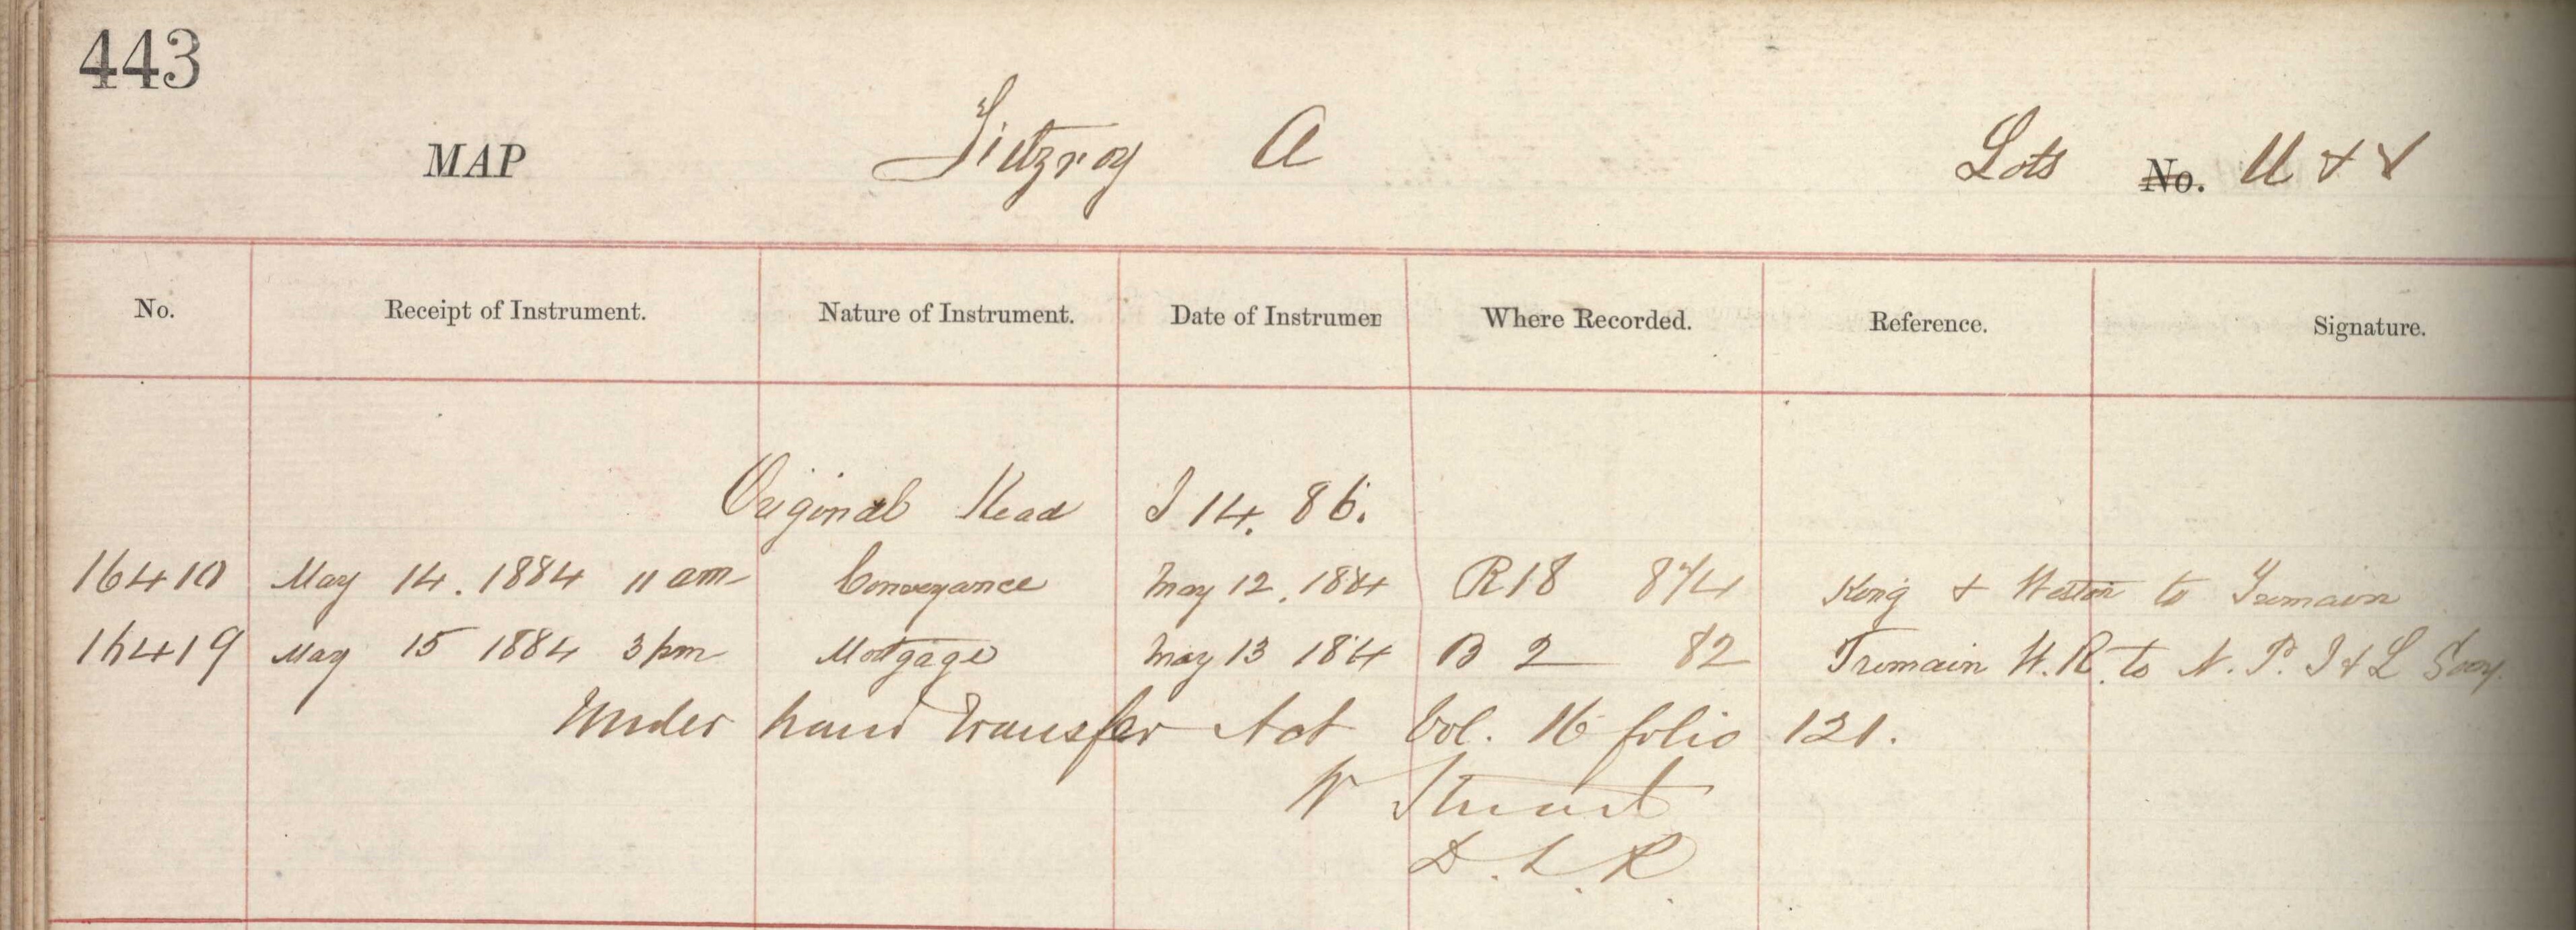 443
MAP Fitzroy A Lots No. U & V
No. Receipt of Instrument. Nature of Instrument. Date of Instrumen Where Recorded. Reference. Signature.
Original Head I 14. 86.
16410 May 14. 1884 11 am Conveyance May 12. 1884 R18 874 King & Weston to Tremain
16419 May 15 1884 3 pm Mortgage May 13 1884 B 2 82 Tremain W. R. to N. P. I & L Socy.
Under Land Transfer Act Vol. 16 folio 121.
W Stuart
D. L. R.